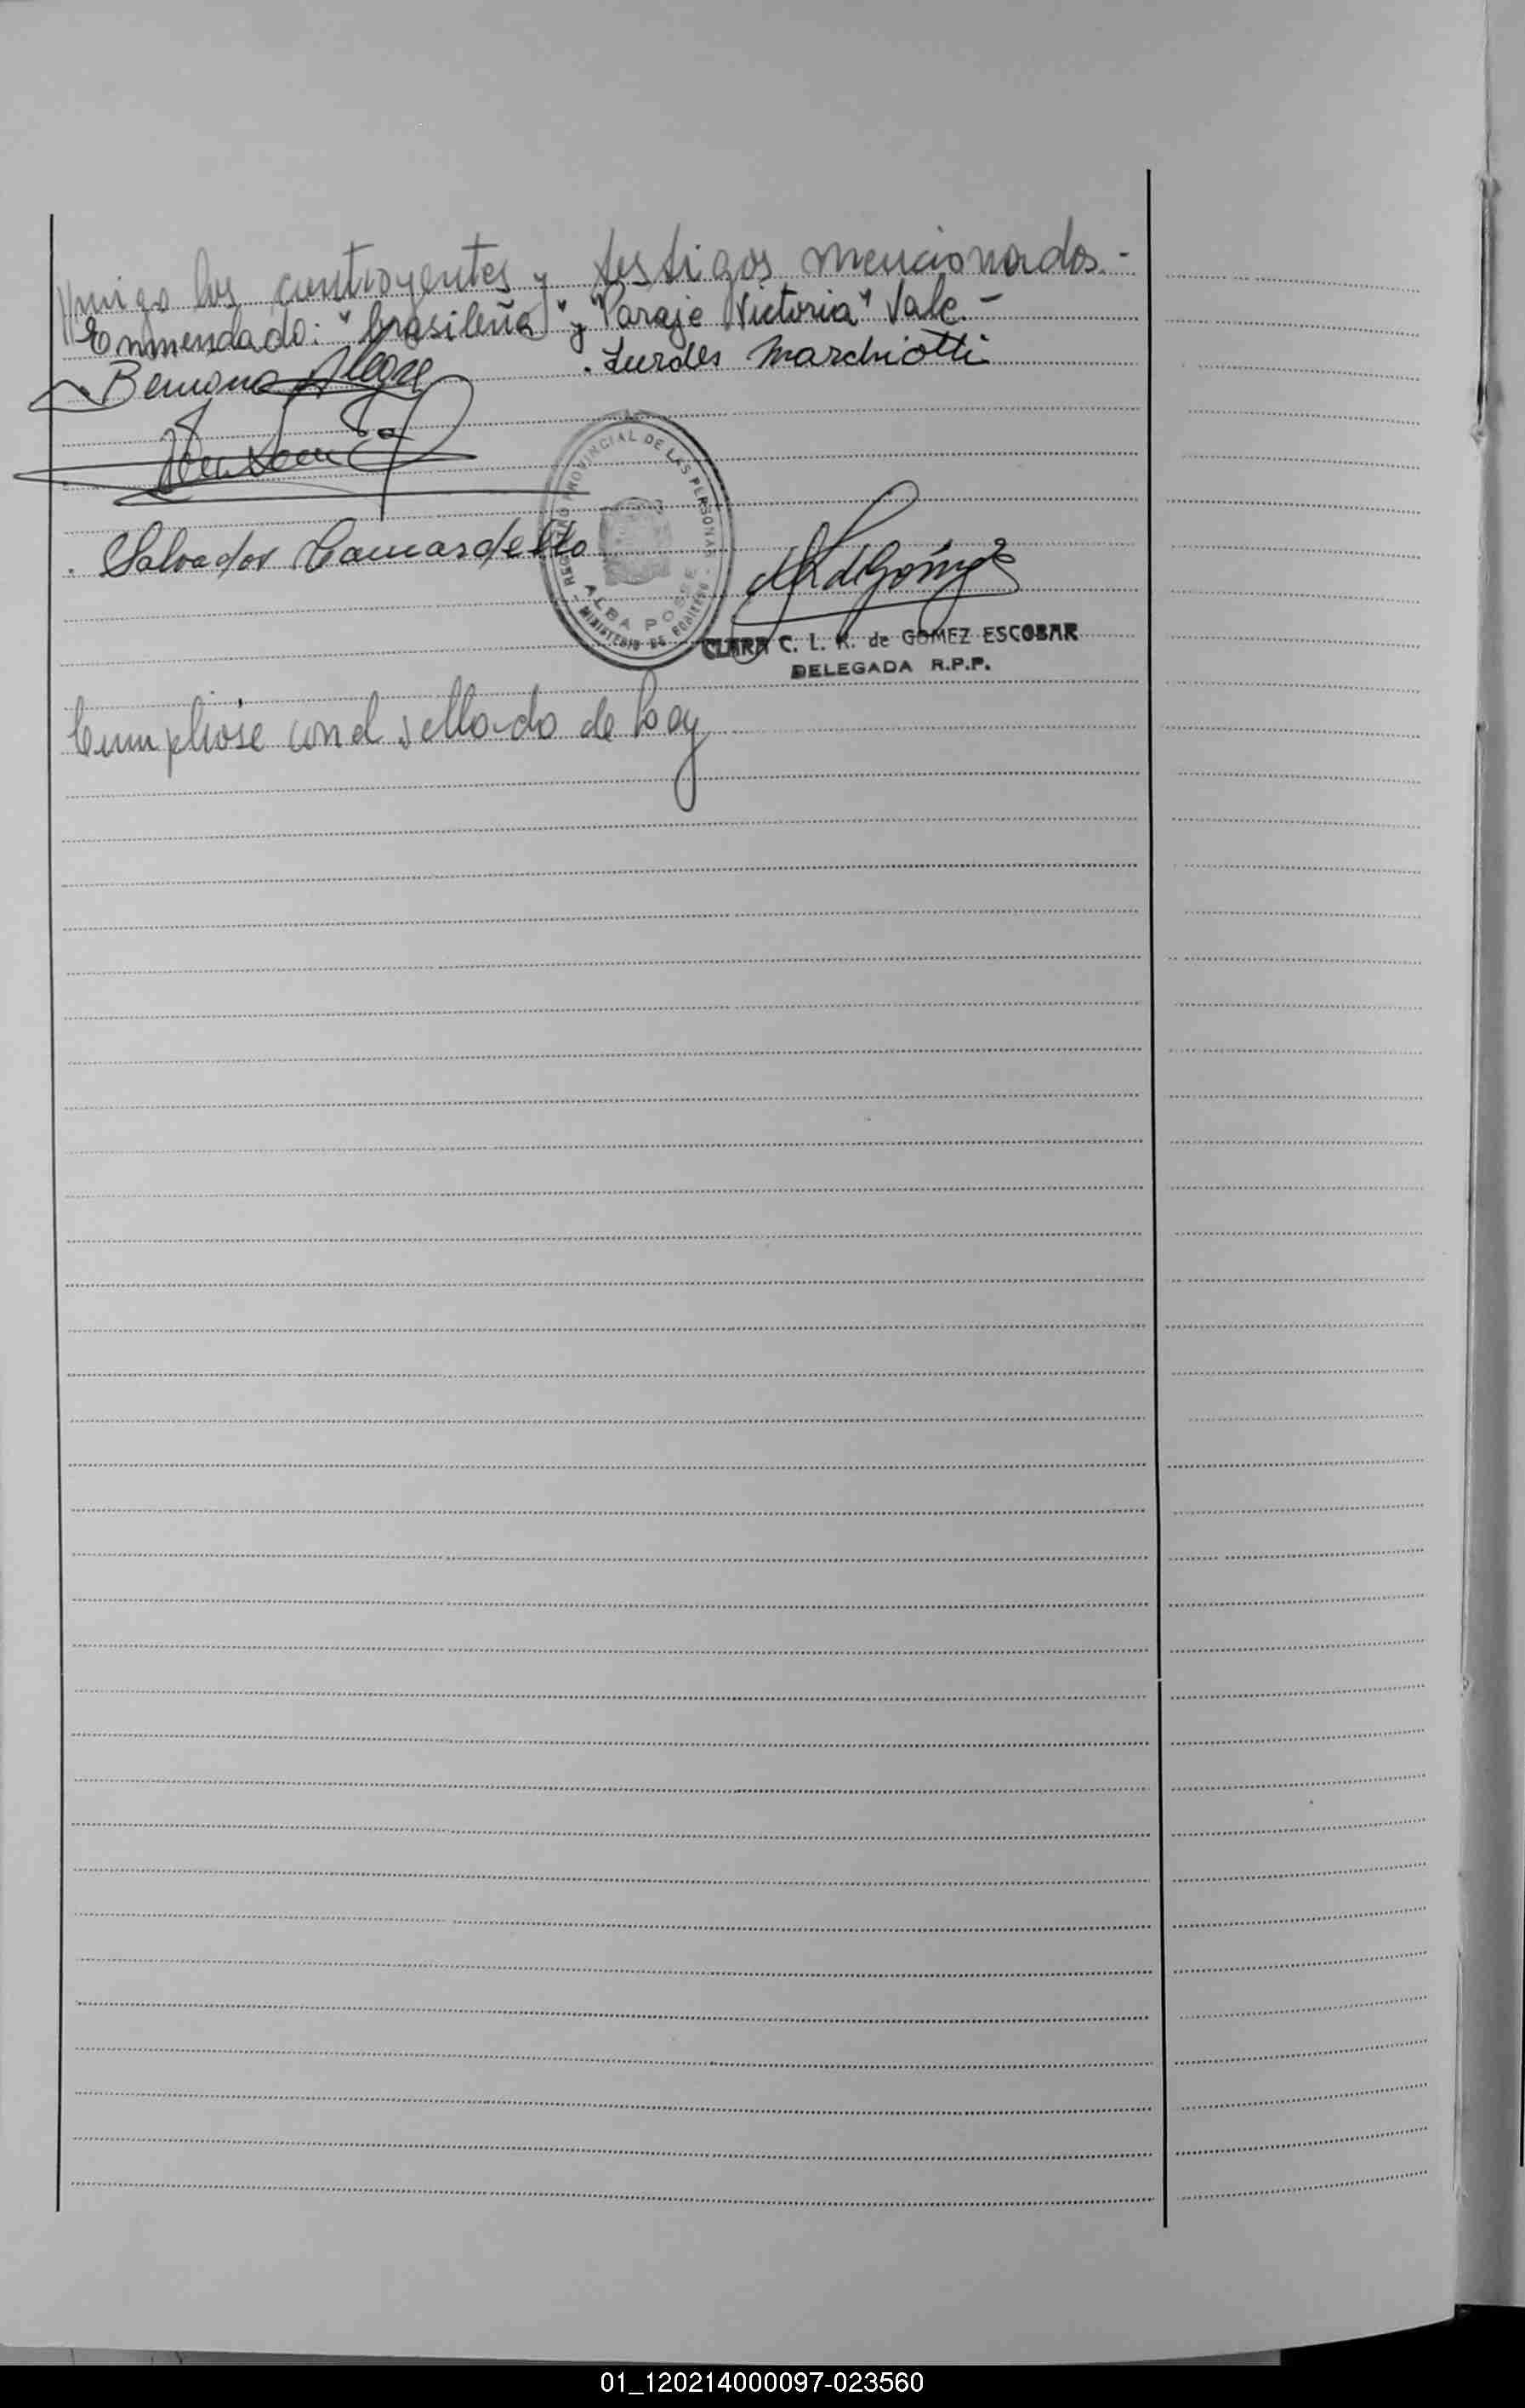 //migo los contrayentes y testigos mencionados.-
Enmendado: "brasileña" y "Paraje Victoria" Vale.-
Benigna Alegre . Lurdes Marchiotti
. Salvador Camardello
REGISTRO PROVINCIAL DE LAS PERSONAS
ALBA POSSE
MINISTERIO DE GOBIERNO
CLARA C. L. K. de GOMEZ ESCOBAR
DELEGADA R.P.P.
Cumpliose con el sellado de Ley
01_120214000097-023560